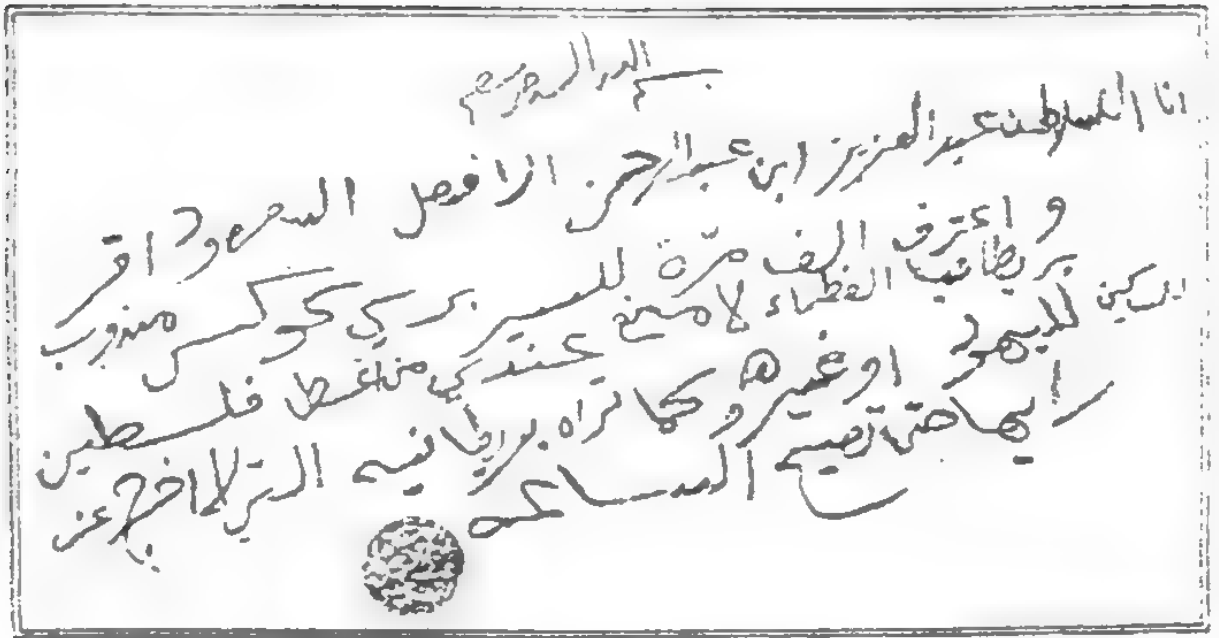 بسم الله الرحمن الرحيم
انا السلطان عبد العزيز ابن عبد الرحمن الافيصل السعود اقر
و اعترف الف مرّة للسير برسي كوكس مندوب
بريطانيا العظماء لا مانع عندي من اعطا فلسطين
للمساكين لليهود او غيرهم وكما تراه بريطانيه التي لا اخرج عن
رايها حتى تصيح الساعه